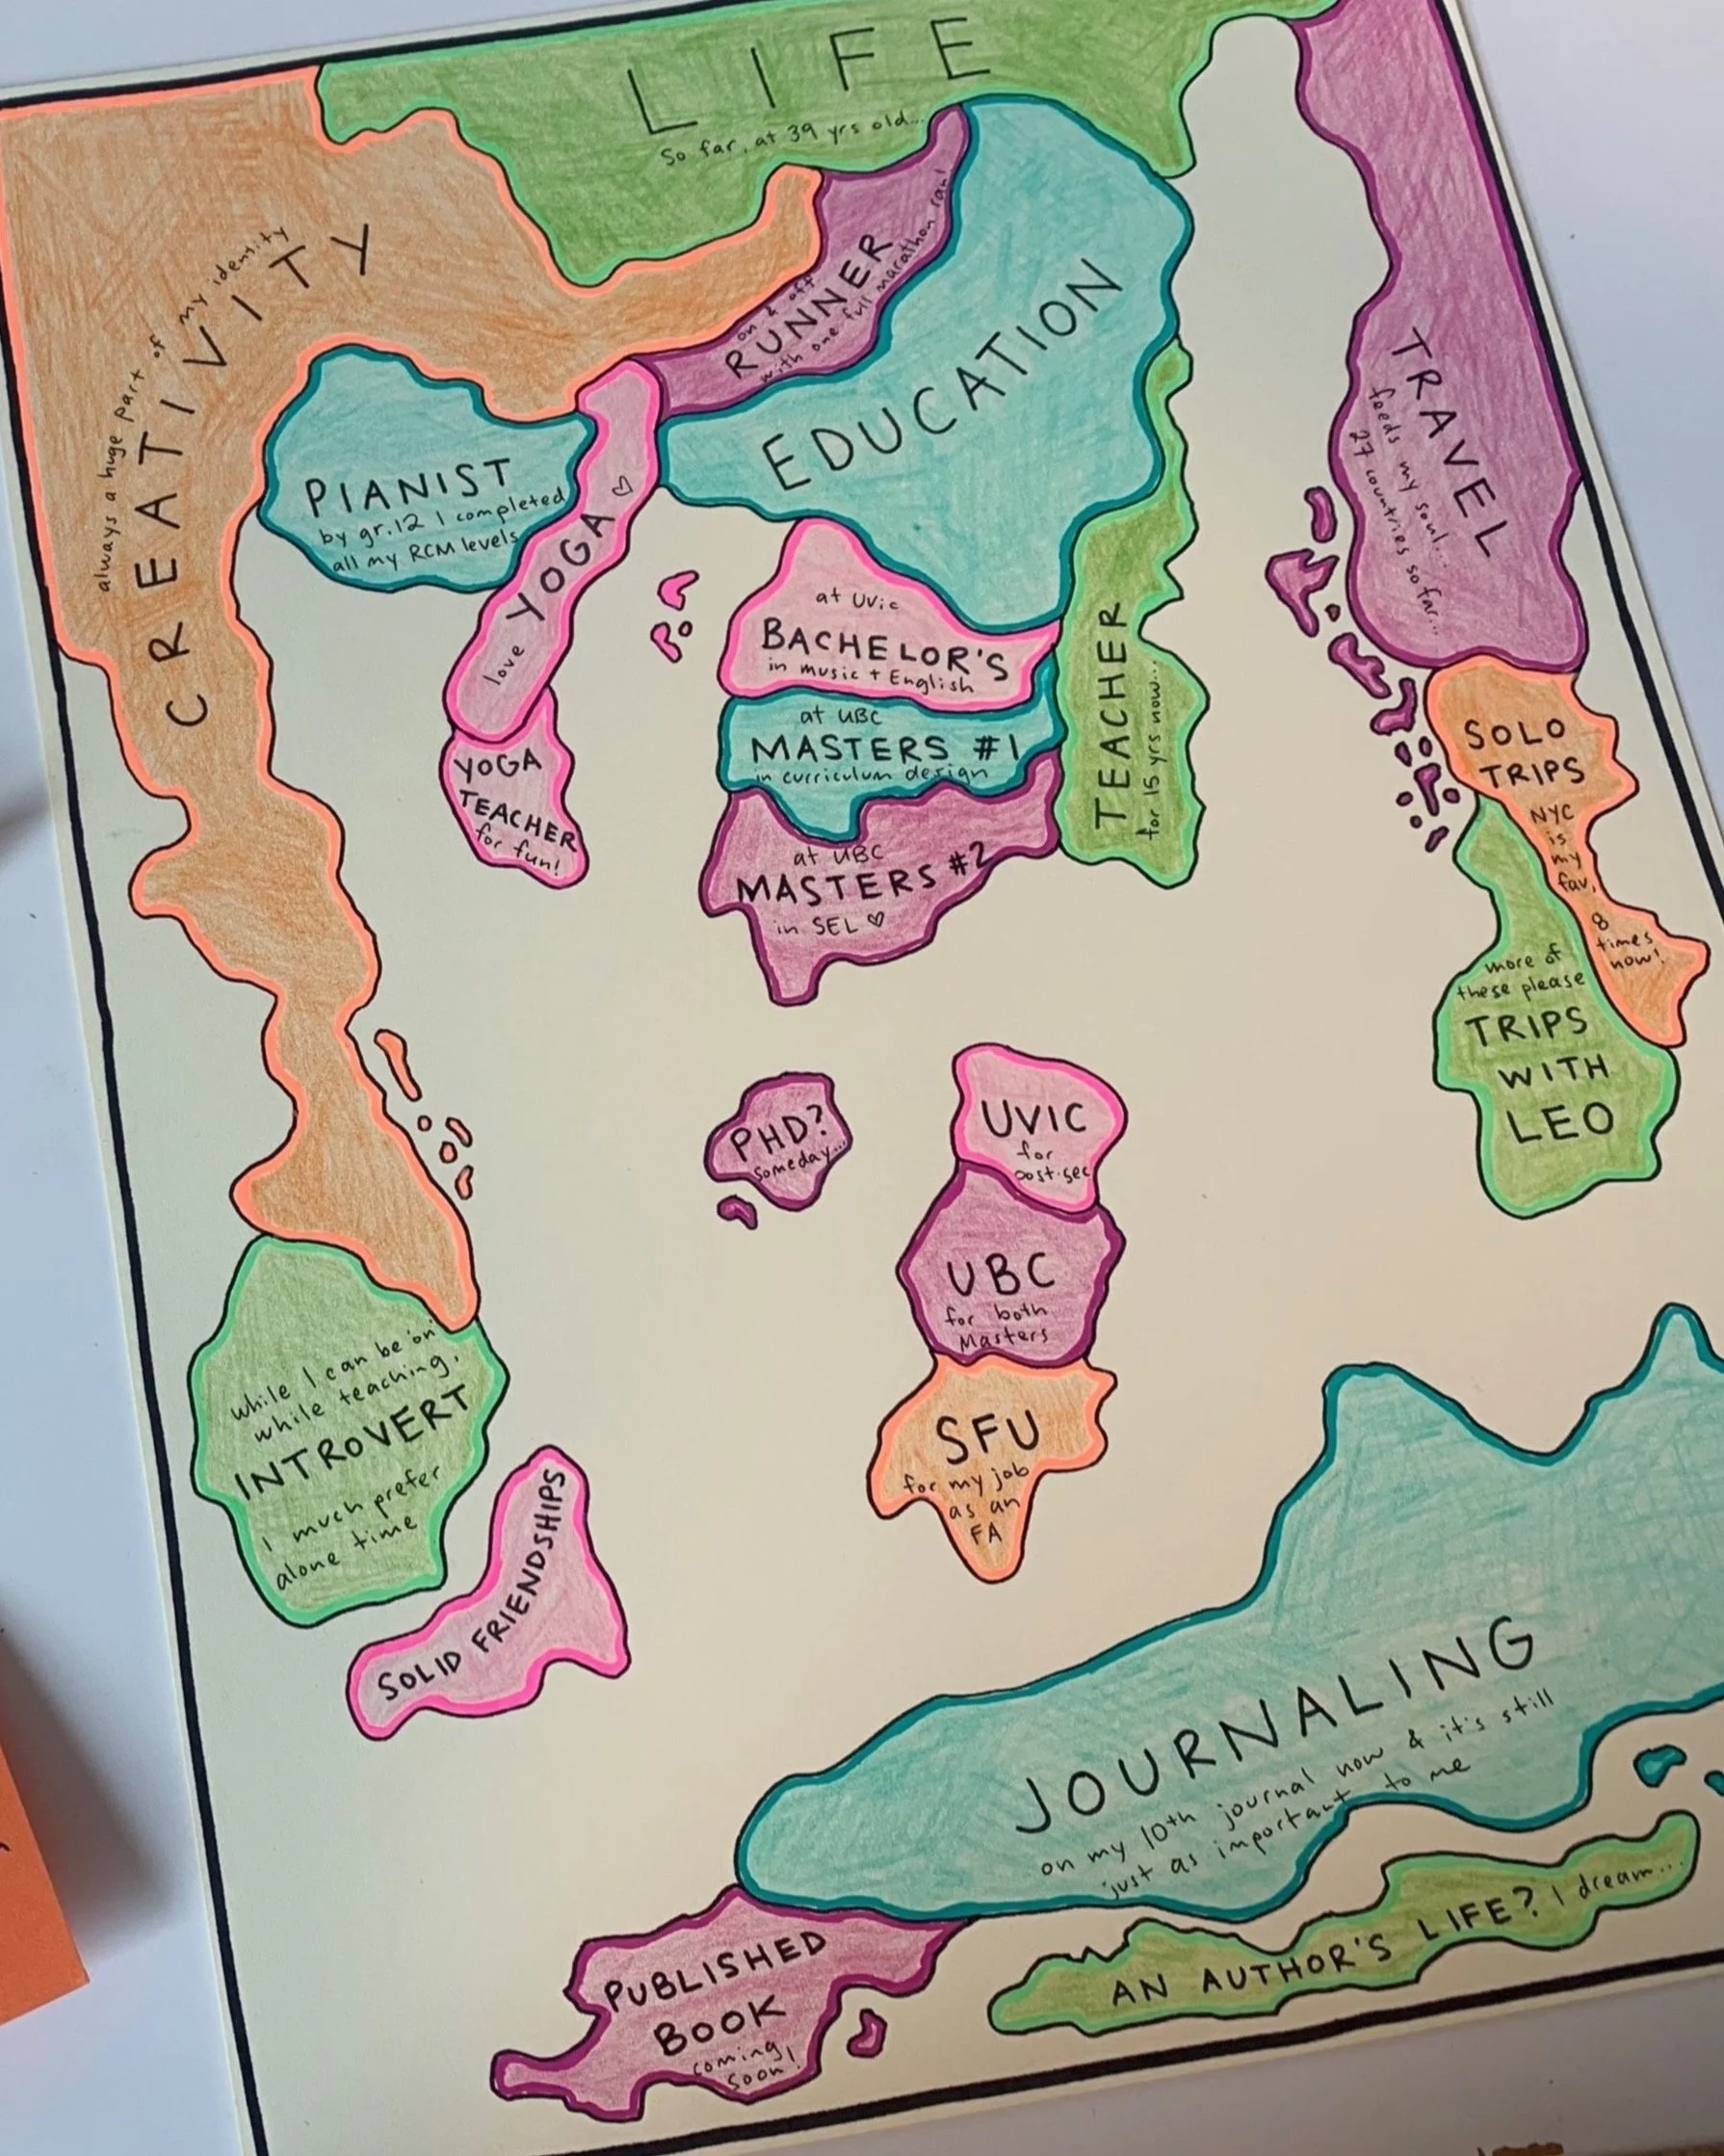 LIFE
So far, at 39 yrs old...
CREATIVITY
always a huge part of my identity
RUNNER
on & off
with one full marathon ran!
EDUCATION
TRAVEL
feeds my soul...
27 countries so far...
PIANIST
by gr.12 I completed
all my RCM levels
love YOGA ♡
YOGA
TEACHER
for fun!
at UVic
BACHELOR'S
in music + English
at UBC
MASTERS #1
in curriculum design
at UBC
MASTERS #2
in SEL ♡
TEACHER
for 15 yrs now...
SOLO
TRIPS
NYC
is
my
fav,
8
times
now!
more of
these please
TRIPS
WITH
LEO
PHD?
someday...
UVIC
for
post-sec
UBC
for both
Masters
SFU
for my job
as an
FA
while I can be 'on'
while teaching,
INTROVERT
I much prefer
alone time
SOLID FRIENDSHIPS
JOURNALING
on my 10th journal now & it's still
just as important to me
PUBLISHED
BOOK
coming
soon!
AN AUTHOR'S LIFE? I dream...